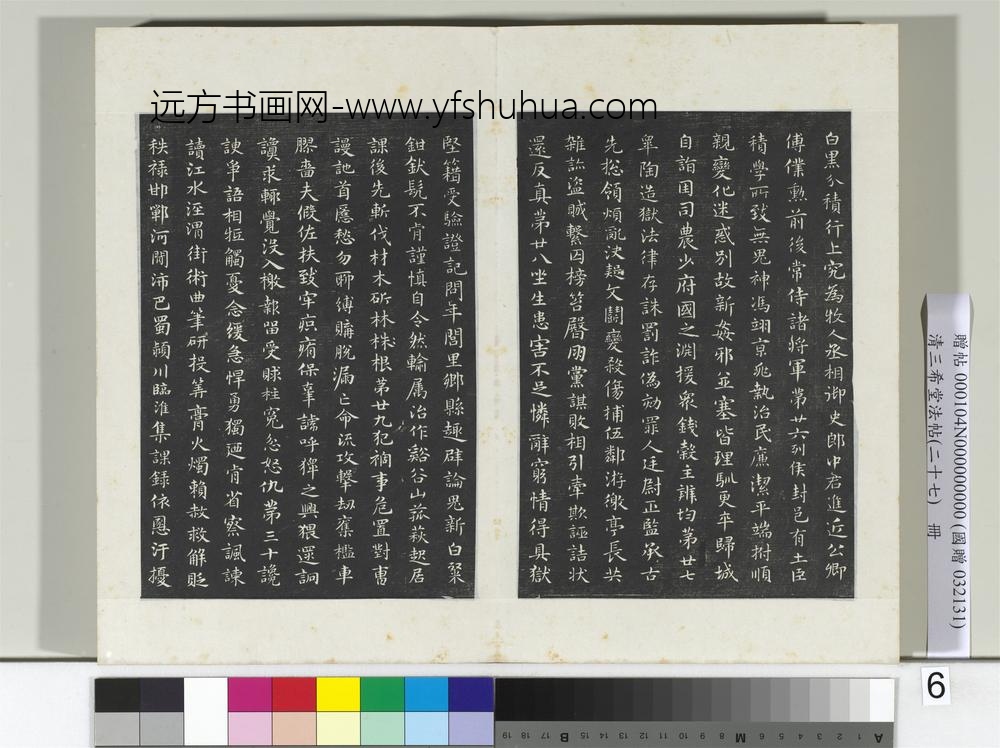 远方书画网-www.yfshuhua.com
白黑分積行上究為牧人丞相御史郎中君進近公卿
傅僕勲前後常侍諸將軍第廿六列侯封邑有土臣
積學所致無鬼神馮翊京兆執治民廉潔平端拊順
親變化迷惑別故新姦邪並塞皆理馴更卒歸城
自詣因司農少府國之淵援眾錢穀主辨均第廿七
皐陶造獄法律存誅罰詐偽劾罪人廷尉正監承古
先總領煩亂決疑文鬬變殺傷捕伍鄰游徼亭長共
雜診盜贼繫囚榜笞臀雨黨謀敗相引牽欺誣詰狀
還反真第廿八坐生患害不足憐辭窮情得具獄
堅籍受驗證記問年閭里鄉縣趣辟論鬼新白粲
鉗釱髡不肯謹慎自令然輸属治作谿谷山菰萩起居
課後先斬伐材木斫林株根第廿九犯禍事危置對曹
謾訑首匿愁勿聊縛購脱漏亡命流攻擊劫奪檻車
膠嗇夫假佐扶致牢疻痏保辜謕呼獆之興猥逻詗
讀求輒覺没入檄報留受賕枉冤忿怒仇第三十讒
諛爭語相牴觸憂念缓急悍勇獨迺肯省察諷諫
讀江水涇渭街術曲筆研投筭膏火燭賴赦救解貶
秩禄邯鄲河間沛巴蜀潁川臨淮集課録依恩汙擾
贈帖 000104N000000000 (國贈 032131)
清三希堂法帖(二十七) 冊
6